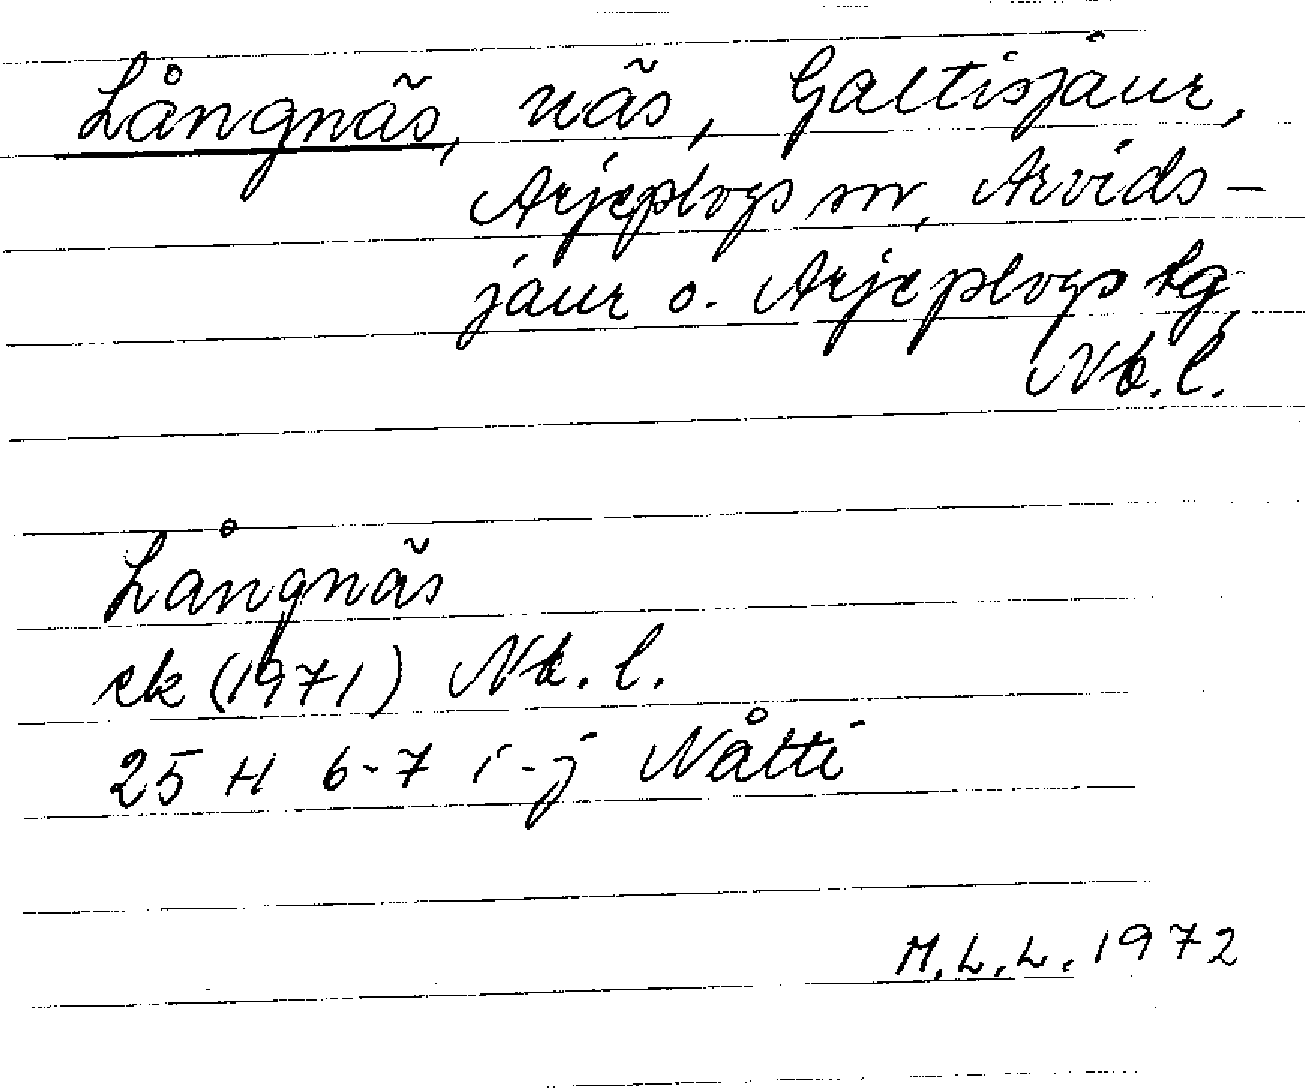 Långnäs, näs, Galtisjaur,
Arjeplogs sn, Arvids-
jaur o. Arjeplogs tg,
Nb.l.
Långnäs
ek (1971) Nb.l.
25 H 6-7 i-j Nåtti
M.L.L. 1972